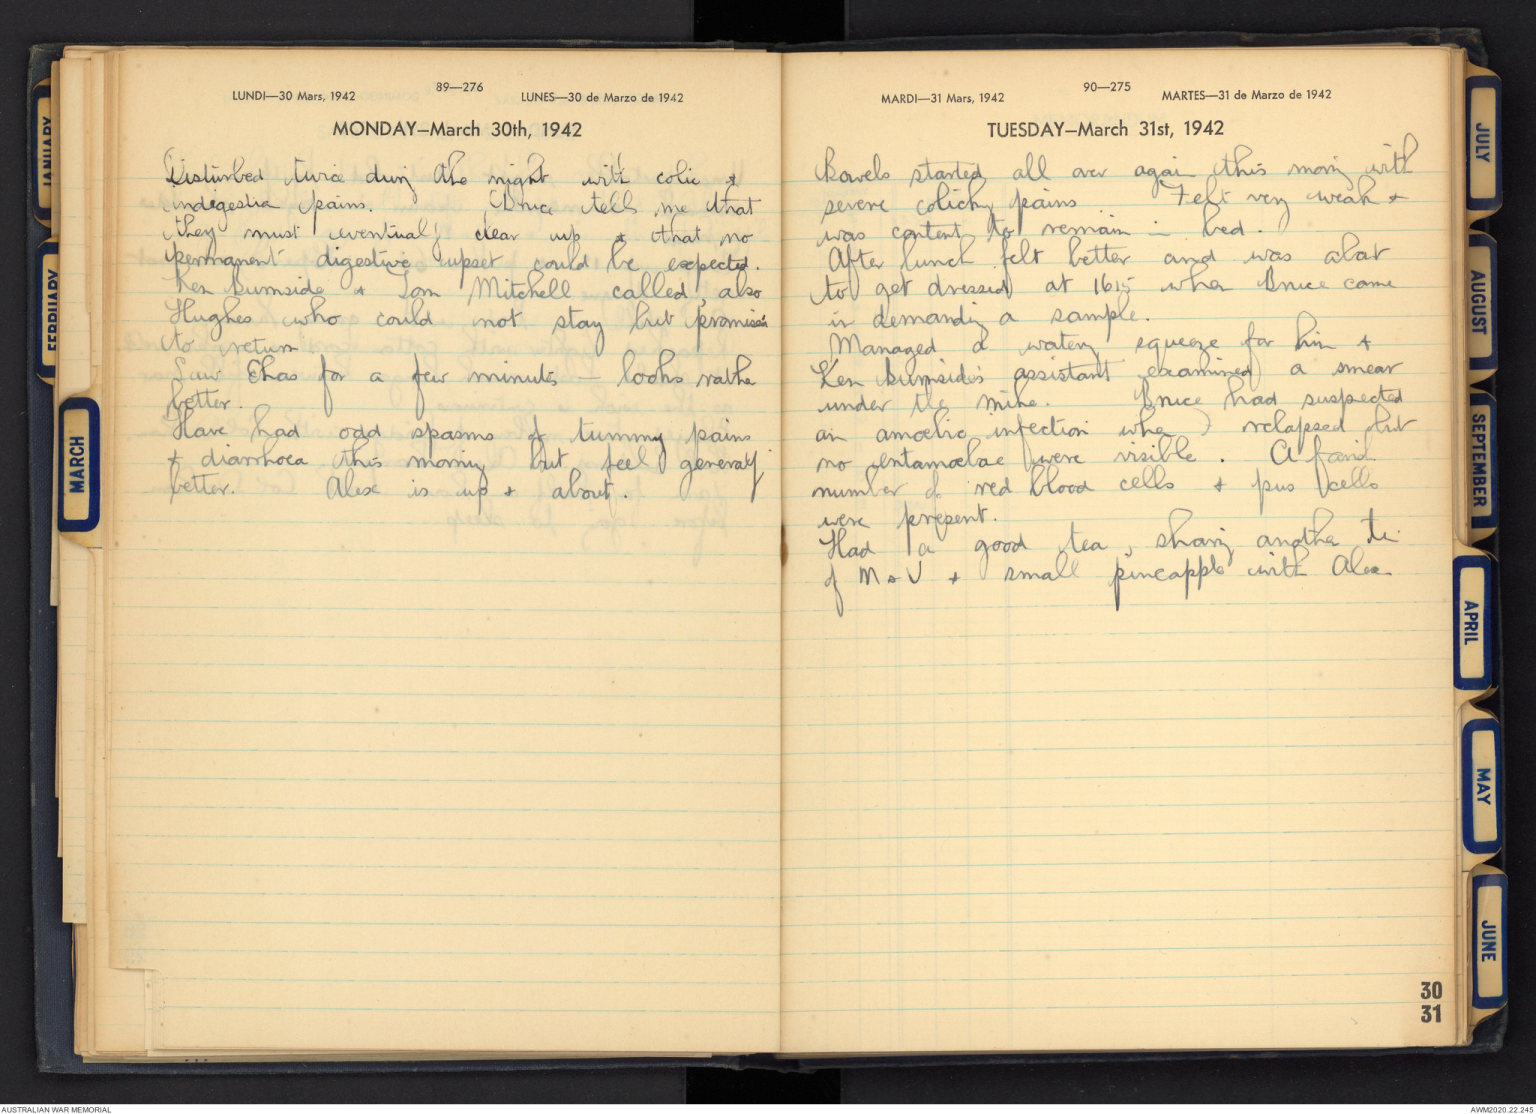 JANUARY
FEBRUARY
MARCH
LUNDI—30 Mars, 1942
89—276
LUNES—30 de Marzo de 1942
MONDAY—March 30th, 1942
Disturbed twice during the night with colic &
indigestion pains. Bruce tells me that
they must eventually clear up & that no
permanent digestive upset could be expected.
Ken Burnside & Tom Mitchell called, also
Hughes who could not stay but promised
to return
Saw Ehas for a few minutes — looks rather
better.
Have had odd spasms of tummy pains
& diarrhoea this morning but feel generally
better. Alex is up & about.
MARDI—31 Mars, 1942
90—275
MARTES—31 de Marzo de 1942
TUESDAY—March 31st, 1942
Bowels started all over again this morning with
severe colicky pains Felt very weak &
was content to remain in bed.
After lunch felt better and was about
to get dressed at 1615 when Bruce came
in demanding a sample.
Managed a watery squeeze for him &
Ken Burnside's assistant examined a smear
under the mike. Bruce had suspected
an amoebic infection when I relapsed but
no entamoebae were visible. A fair
number of red blood cells & pus cells
were present.
Had a good tea, sharing another tin
of M & V & small pineapple with Alex
30
31
JULY
AUGUST
SEPTEMBER
APRIL
MAY
JUNE
AUSTRALIAN WAR MEMORIAL
AWM2020.22.245